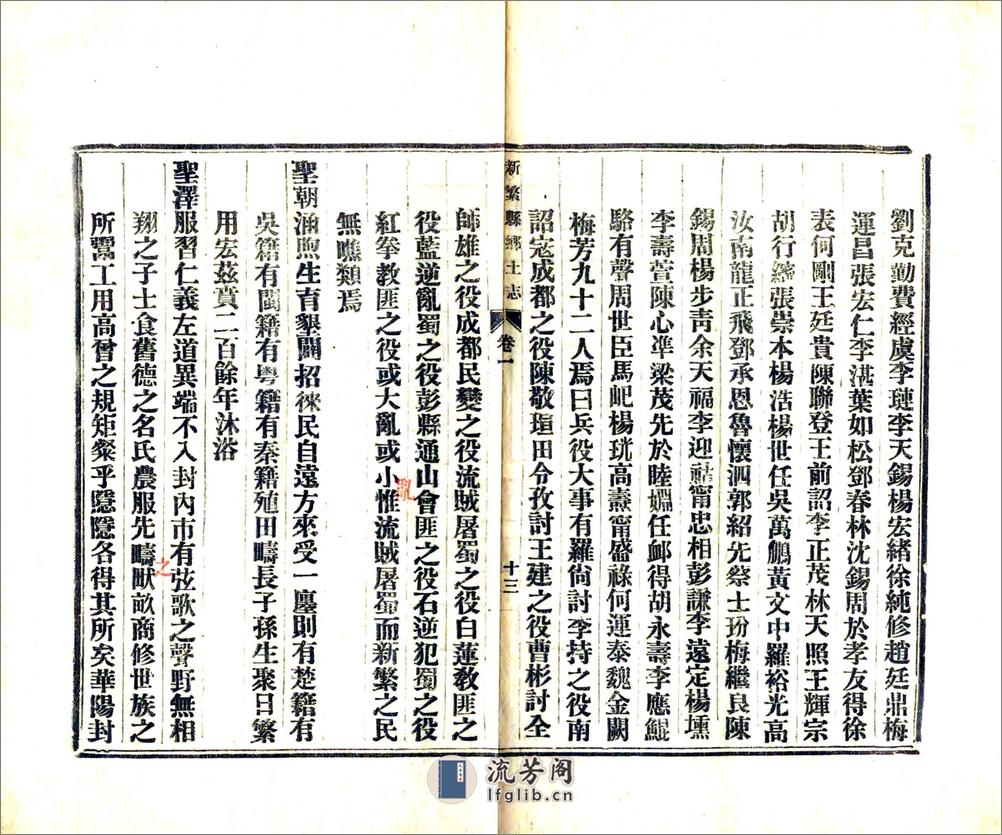 劉克勤費經虞李璉李天錫楊宏緒徐純修趙廷鼎梅
運昌張宏仁李湛葉如松鄧春林沈錫周於孝友得徐
表何剛王廷貴陳聯登王前詔李正茂林天照王輝宗
胡行張崇本楊浩楊世任吳萬鵬黃文中羅裕光高
汝南龍正飛鄧承恩魯懷泗郭紹先祭士玢梅繼良陳
錫周楊步靑余天福李迎甯忠相彭謙李遠定楊壎
李壽萱陳心凖梁茂先於睦婣任䘏得胡永壽李應鯤
駱有聲周世臣馬楊珖高燾甯盛祿何運泰魏金闕
梅芳九十二人焉曰兵役大事有羅尙討李持之役南
詔寇成都之役陳敬瑄田令孜討王建之役曹彬討全
新繁縣鄉土志
卷一
十三
師雄之役成都民變之役流賊屠蜀之役白蓮敎匪之
役藍逆亂蜀之役彭縣通山會匪之役石逆犯蜀之役
紅拳敎匪之役或大亂或小惟流賊屠蜀而新繁之民
亂
無噍類焉
聖朝涵煦生育墾闢招徠民自遠方來受一廛則有楚籍有
吳籍有閩籍有粵籍有秦籍殖田疇長子孫生聚日繁
用宏茲賁二百餘年沐浴
聖澤服習仁義左道異端不入封內市有弦歌之聲野無相
翔之子士食舊德之名氏農服先疇畎畝商修世族之
之
所鬻工用高曾之規矩粲乎隱隱各得其所矣華陽封
流芳阁
lfglib.cn